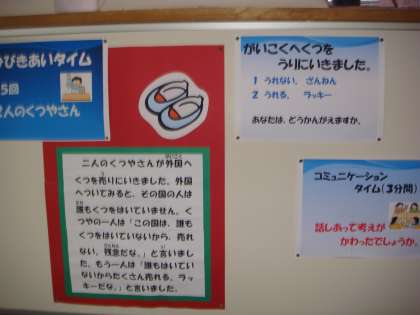 びきあいタイム
5回
2人のくつやさん
二人のくつやさんが外国へ
がいこく
くつを売りにいきました。外国
へついてみると、その国の人は
誰もくつをはいていません。く
つやの一人は「この国は、誰も
くつをはいていないから、売れ
ない。残念だな。」と言いまし
た。もう一人は「誰もはいてい
ないからたくさん売れる。ラッ
キーだな。」と言いました。
がいこくへくつを
うりにいきました。
1 うれない、ざんねん
2 うれる、ラッキー
あなたは、どうかんがえますか。
コミュニケーション
タイム(3分間)
話しあって考えが
かわったでしょうか。